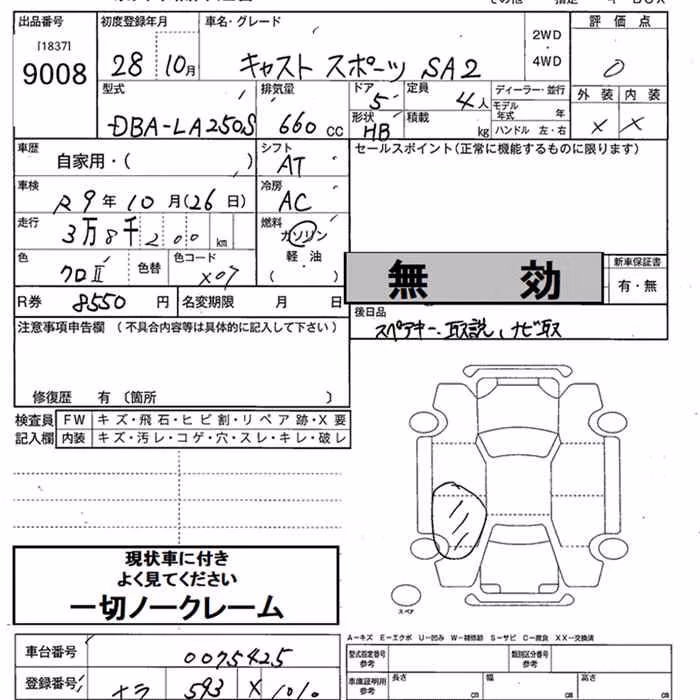 出品番号
[1837]
9008
初度登録年月
28 10月
車名・グレード
キャスト スポーツ SA2
2WD
・
4WD
評価点
0
外装 内装
X X
型式
DBA-LA250S
排気量
660 cc
ドア
5
形状
HB
定員
4人
積載
kg
ディーラー・並行
モデル年式 年
ハンドル 左・右
車歴
自家用・(
シフト
AT
セールスポイント(正常に機能するものに限ります)
車検
R9年10月(26日)
冷房
AC
走行
3万8千200km
燃料
ガソリン
軽・油
( ・ )
色
クロⅡ
色替
色コード
X07
無 効
新車保証書
有・無
R券 8550円
名変期限 月 日
後日品
スペアキー、取説、ナビ取
注意事項申告欄 (不具合内容等は具体的に記入して下さい)
修復歴 有〔箇所 〕
検査員
記入欄
FW キズ・飛石・ヒビ割・リペア跡・X要
内装 キズ・汚レ・コゲ・穴・スレ・キレ・破レ
現状車に付き
よく見てください
一切ノークレーム
スペア
A－キズ E－エクボ U－凹み W－補修跡 S－サビ C－腐食 XX－交換済
車台番号
0075425
型式指定番号
参考
類別区分番号
参考
登録番号
593
車庫証明用
参考
長さ cm
幅 cm
高さ cm